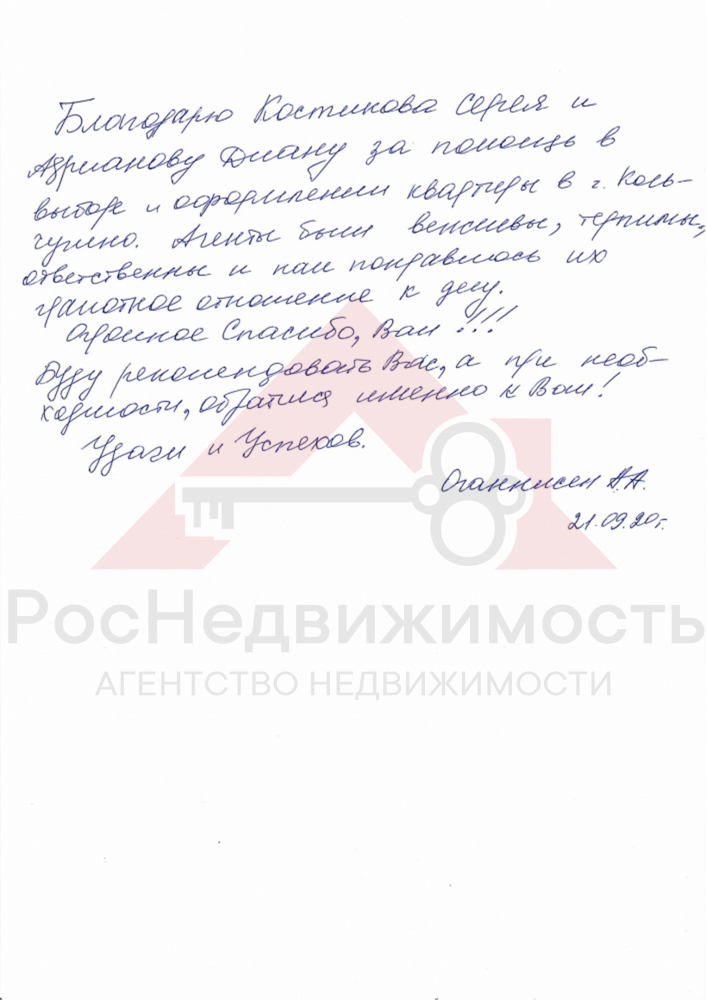 Благодарю Костикова Сергея и
Адрианову Диану за помощь в
выборе и оформлении квартиры в г. Коль-
чугино. Агенты были вежливы, терпимы,
ответственны и нам понравилось их
грамотное отношение к делу.
Огромное Спасибо, Вам!!!
Буду рекомендовать Вас, а при необ-
ходимости, обращусь именно к Вам!
Удачи и Успехов.
Оганнисен А.А.
21.09.20г.
РосНедвижимость
АГЕНТСТВО НЕДВИЖИМОСТИ